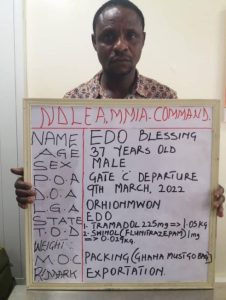 NDLEA, MMIA-COMMAND.
NAME EDO BLESSING
AGE 37 YEARS OLD
SEX MALE
P.O.A GATE 'C' DEPARTURE
D.O.A 9TH MARCH, 2022
L.G.A ORHIONMWON
STATE EDO
T.O.D 1. TRAMADOL 225mg => 1.05kg
2. SWINOL (FLUNITRAZEPAM) 1mg
WEIGHT: => 0.029kg.
M.O.C PACKING (GHANA MUST GO BAG)
REMARK EXPORTATION.